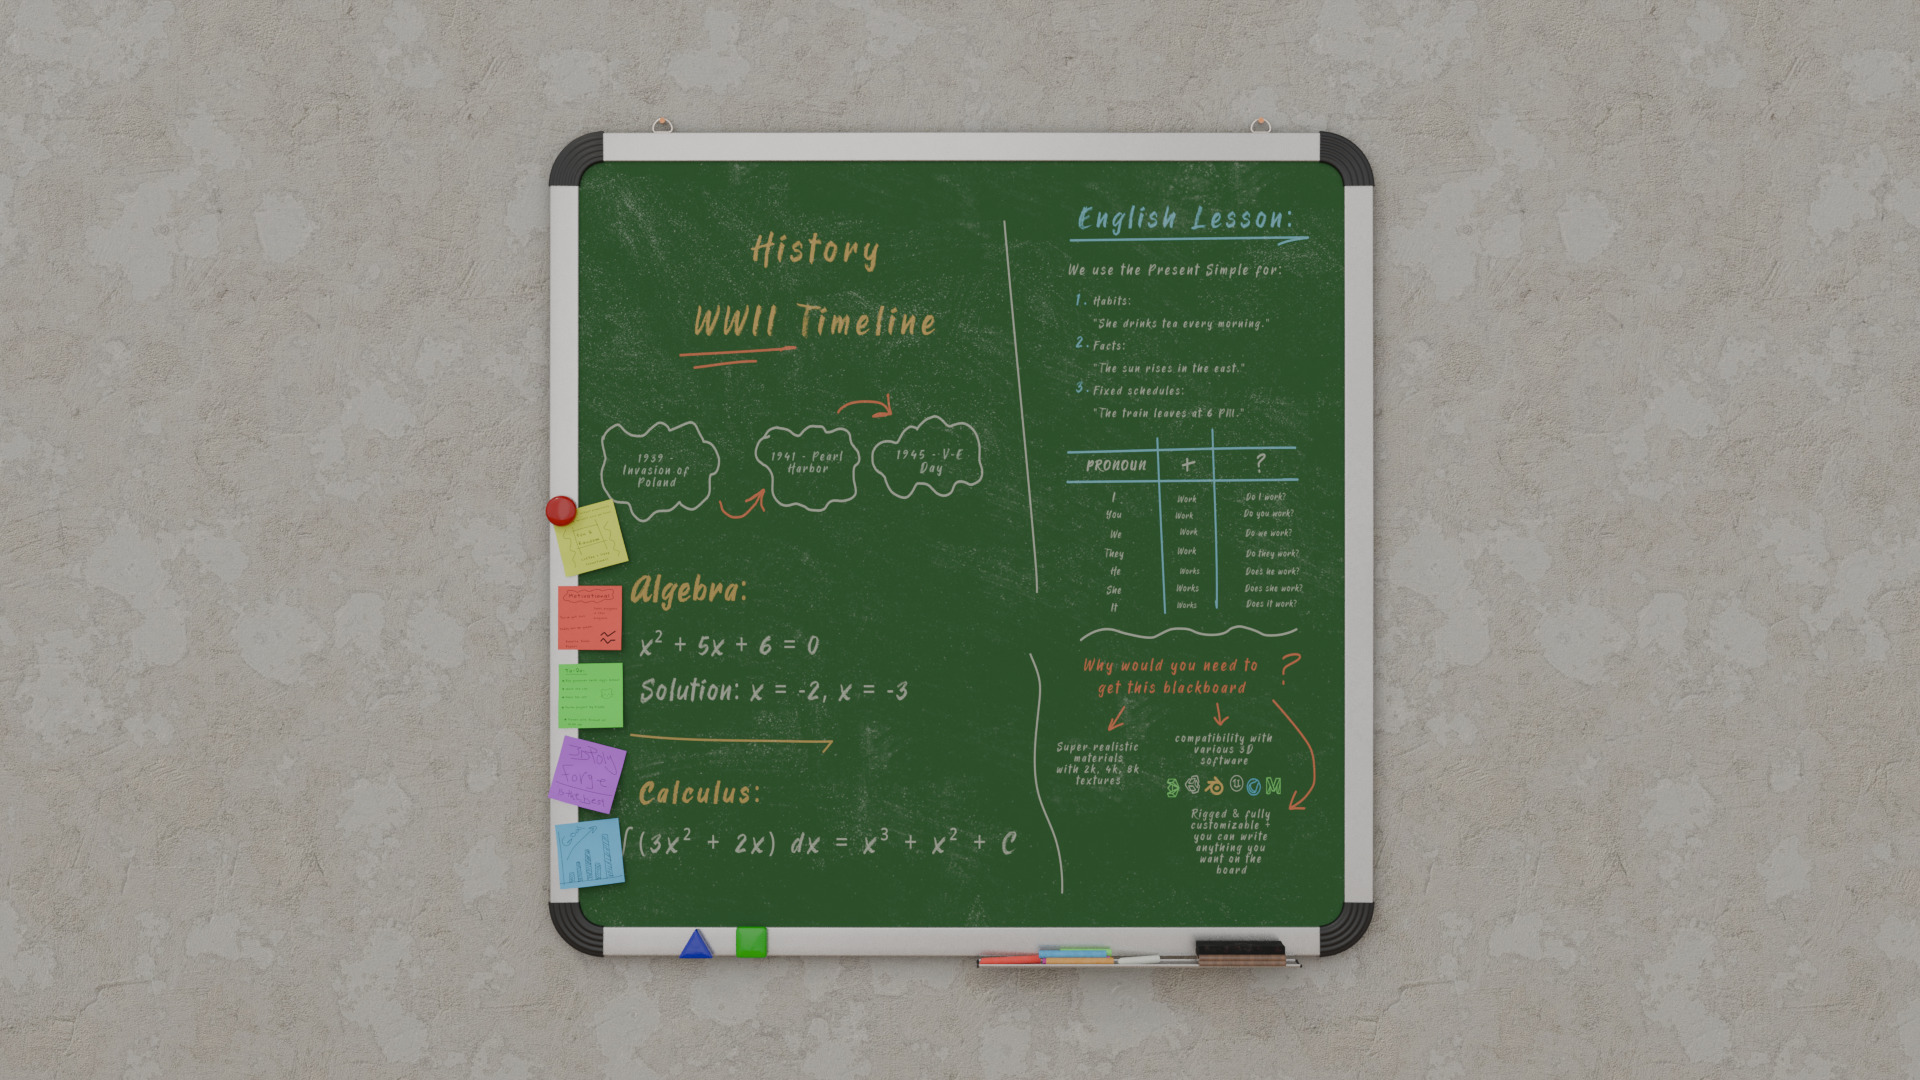 History
WWII Timeline
1939 -
Invasion of
Poland
1941 - Pearl
Harbor
1945 - V-E
Day
Algebra:
x² + 5x + 6 = 0
Solution: x = -2, x = -3
Calculus:
∫(3x² + 2x) dx = x³ + x² + C
English Lesson:
We use the Present Simple for:
1. Habits:
"She drinks tea every morning."
2. Facts:
"The sun rises in the east."
3. Fixed schedules:
"The train leaves at 6 PM."
PRONOUN + ?
I Work Do I work?
You Work Do you work?
We Work Do we work?
They Work Do they work?
He Works Does he work?
She Works Does she work?
It Works Does it work?
Why would you need to
get this blackboard ?
Super realistic
materials
with 2k, 4k, 8k
textures
compatibility with
various 3D
software
Rigged & fully
customizable +
you can write
anything you
want on the
board
Motivational
To Do
Forge